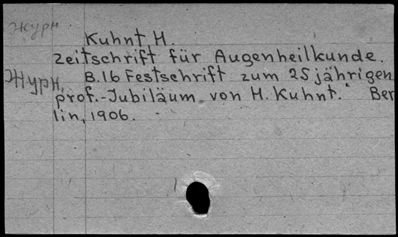 Журн.
Kuhnt H.
Zeitschrift für Augenheilkunde.
Журн. B.16 Festschrift zum 25 jährigen
prof.-Jubiläum von H. Kuhnt. Ber
lin, 1906.